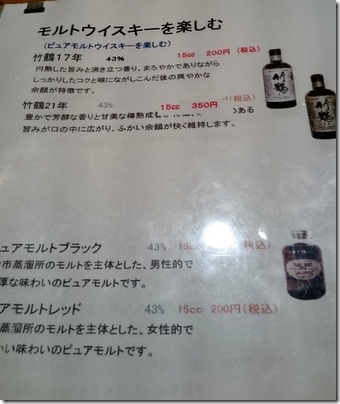 モルトウイスキーを楽しむ
(ピュアモルトウイスキーを楽しむ)
竹鶴17年 43% 15cc 200円 (税込)
円熟した旨みと沸き立つ香り、まろやかでありながら
しっかりしたコクと喉にながしこんだ後の爽やかな
余韻が特徴です。
竹鶴21年 43% 15cc 350円 (税込)
豊かで芳醇な香りと甘美な樽熟成 のある
旨みが口の中に広がり、ふかい余韻が快く維持します。
竹鶴
竹鶴
ュアモルトブラック 43% 15cc 200円(税込)
市蒸溜所のモルトを主体とした、男性的で
厚な味わいのピュアモルトです。
アモルトレッド 43% 15cc 200円(税込)
蒸溜所のモルトを主体とした、女性的で
かい味わいのピュアモルトです。